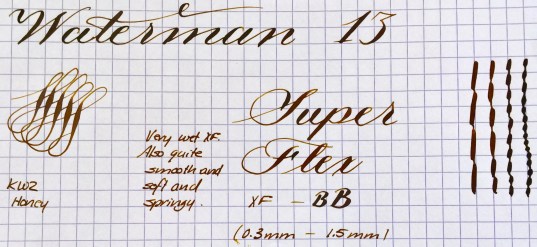 Waterman 13
Super
Flex
XF - BB
(0.3mm - 1.5mm)
Very wet XF.
Also quite
smooth and
soft and
springy.
KWZ
Honey